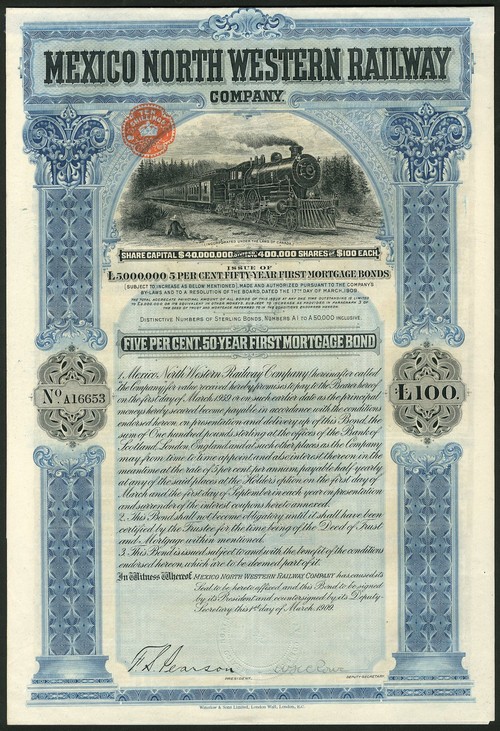 MEXICO NORTH WESTERN RAILWAY
COMPANY.
TEN
SHILLINGS
INCORPORATED UNDER THE LAWS OF CANADA
SHARE CAPITAL $40,000,000 400,000 SHARES OF $100 EACH.
ISSUE OF
£5,000,000 5 PER CENT FIFTY-YEAR FIRST MORTGAGE BONDS
(SUBJECT TO INCREASE AS BELOW MENTIONED), MADE AND AUTHORIZED PURSUANT TO THE COMPANY'S
BY-LAWS AND TO A RESOLUTION OF THE BOARD, DATED THE 17TH DAY OF MARCH, 1909.
THE TOTAL AGGREGATE PRINCIPAL AMOUNT OF ALL BONDS OF THIS ISSUE AT ANY ONE TIME OUTSTANDING IS LIMITED
DISTINCTIVE NUMBERS OF STERLING BONDS, NUMBERS A1 TO A50,000 INCLUSIVE.
FIVE PER CENT. 50-YEAR FIRST MORTGAGE BOND
No. A16653
£100.
1. Mexico North Western Railway Company (hereinafter called
The Company) for value received hereby promises to pay to the Bearer hereof
on the first day of March 1959 or on such earlier date as the principal
moneys hereby secured become payable in accordance with the conditions
endorsed hereon, on presentation and delivery up of this Bond, the
sum of One hundred pounds sterling at the offices of the Bank of
Scotland, London, England, and at such other places as the Company
may from time to time appoint and also interest thereon in the
meantime at the rate of 5 per cent. per annum, payable half-yearly
at any of the said places at the Holders option on the first day of
March and the first day of September in each year on presentation
and surrender of the interest coupons hereto annexed.
2. This Bond shall not become obligatory until it shall have been
certified by the Trustee for the time being of the Deed of Trust
and Mortgage within mentioned.
3. This Bond is issued subject to and with the benefit of the conditions
endorsed hereon, which are to be deemed part of it.
In Witness Whereof MEXICO NORTH WESTERN RAILWAY COMPANY has caused its
Seal to be hereto affixed, and this Bond to be signed
by its President and countersigned by its Deputy-
Secretary this 1st day of March, 1909.
F.S. Pearson
PRESIDENT.
DEPUTY SECRETARY.
Waterlow & Sons Limited, London Wall, London, E.C.